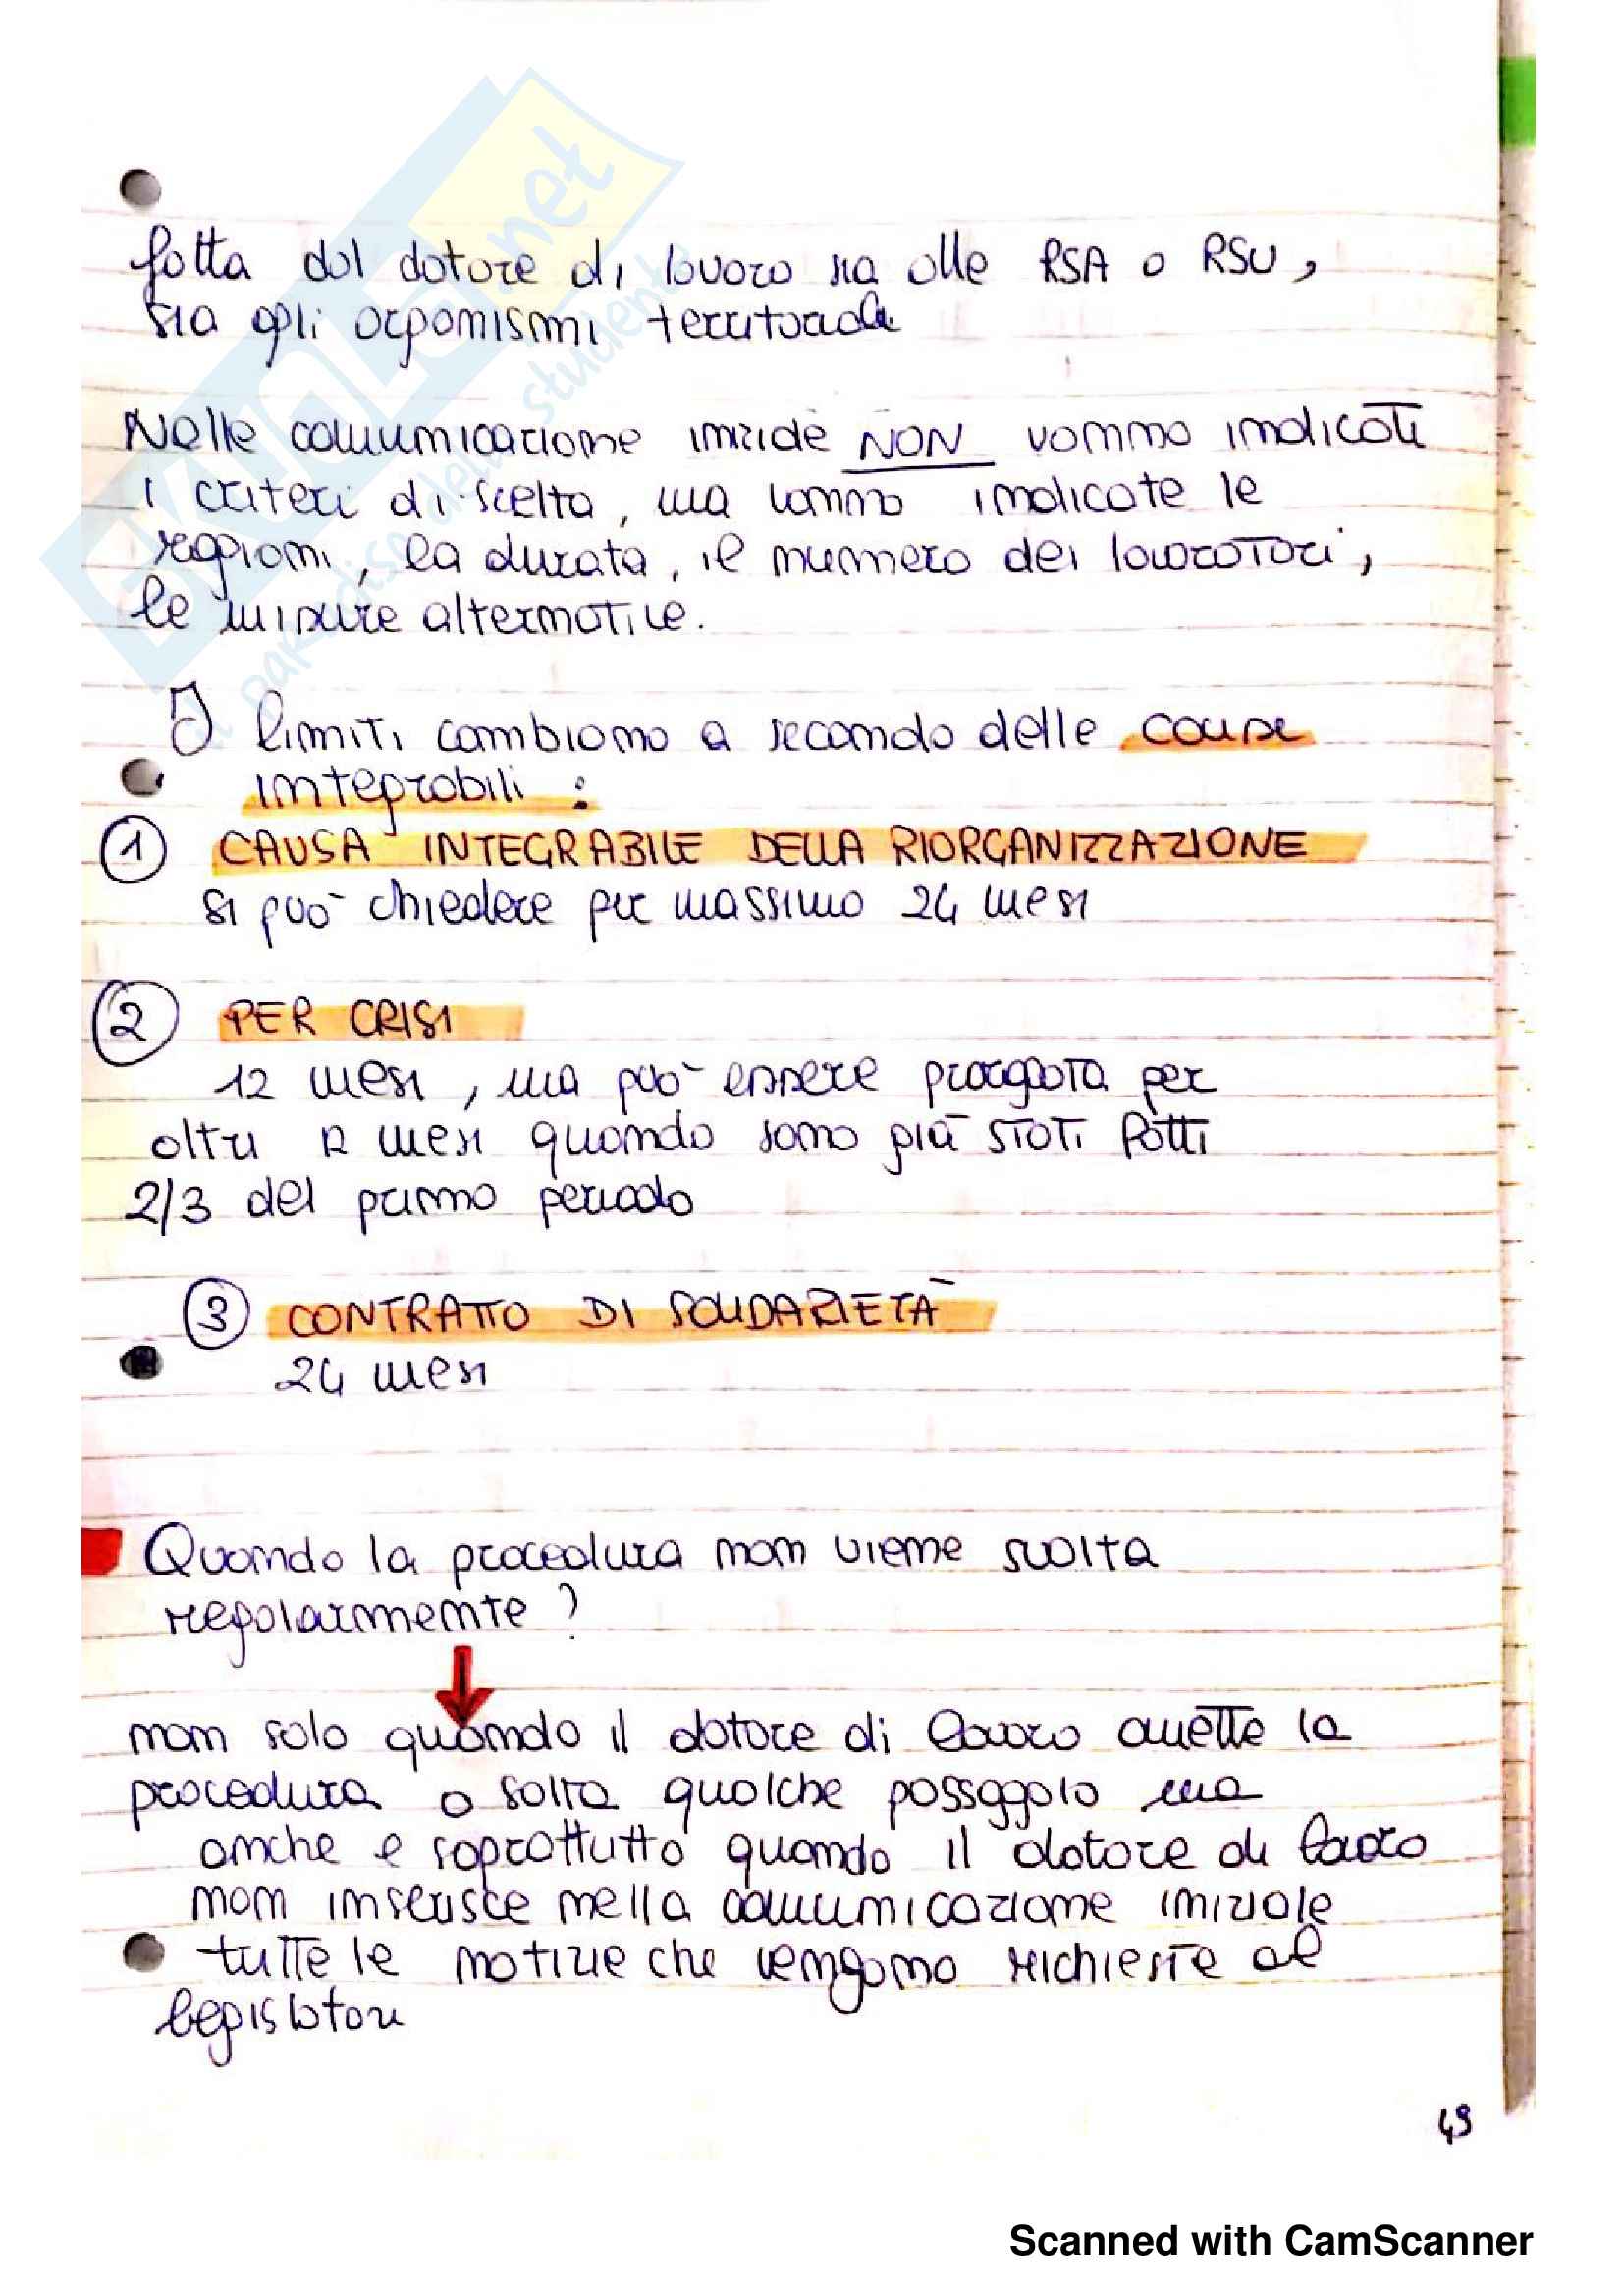 fatta dal datore di lavoro sia alle RSA o RSU,
sia agli organismi territoriali
Nelle comunicazione iniziale NON vanno indicati
i criteri di scelta, ma vanno indicate le
ragioni, la durata, il numero dei lavoratori,
le misure alternative.
I limiti cambiano a secondo delle cause
integrabili :
1 CAUSA INTEGRABILE DELLA RIORGANIZZAZIONE
si può chiedere per massimo 24 mesi
2 PER CRISI
12 mesi, ma può essere prorogata per
altri 12 mesi quando sono già stati fatti
2/3 del primo periodo
3 CONTRATTO DI SOLIDARIETÀ
24 mesi
Quando la procedura non viene svolta
regolarmente ?
non solo quando il datore di lavoro omette la
procedura o salta qualche passaggio ma
anche e soprattutto quando il datore di lavoro
non inserisce nella comunicazione iniziale
tutte le notizie che vengono richieste al
legislatore
49
Scanned with CamScanner
skuola.net
il paradiso dello studente